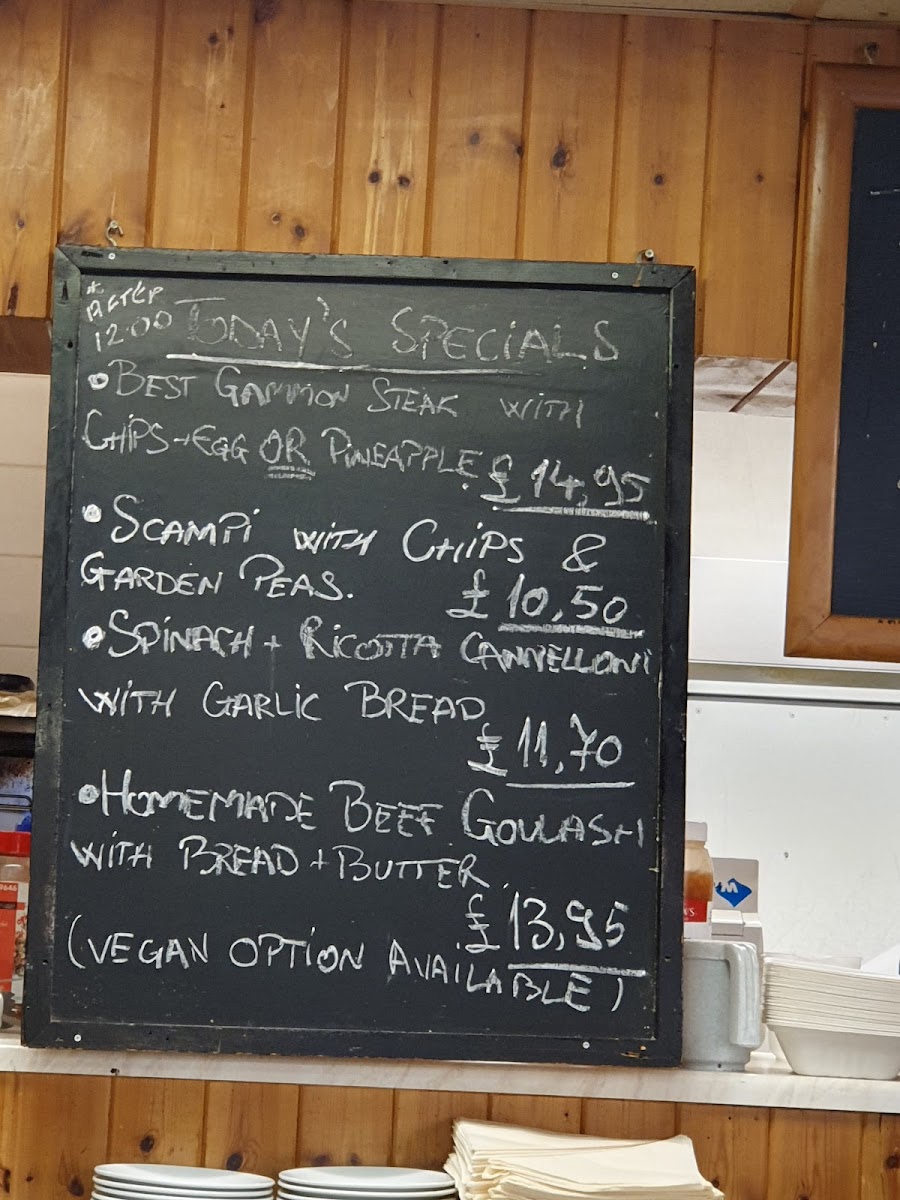 * AFTER
12:00
TODAY'S SPECIALS
• BEST GAMMON STEAK WITH
CHIPS + EGG OR PINEAPPLE
£14,95
• SCAMPI WITH CHIPS &
GARDEN PEAS.
£10,50
• SPINACH + RICOTTA CANNELLONI
WITH GARLIC BREAD
£11,70
• HOMEMADE BEEF GOULASH
WITH BREAD + BUTTER
£13,95
(VEGAN OPTION AVAILABLE)